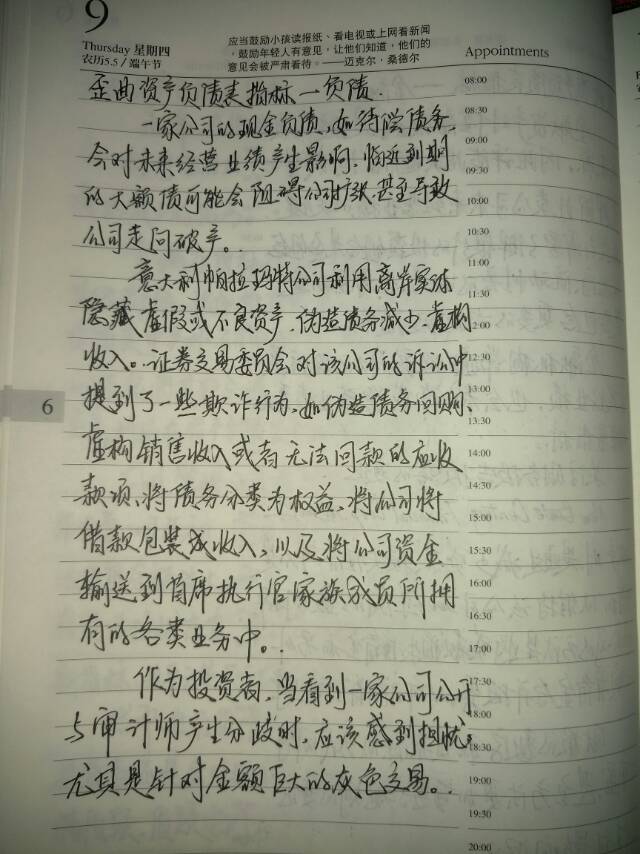 9
Thursday 星期四
农历5.5/端午节
应当鼓励小孩读报纸、看电视或上网看新闻
,鼓励年轻人有意见，让他们知道，他们的
意见会被严肃看待。——迈克尔·桑德尔
Appointments
歪曲资产负债表指标—负债.
一家公司的现金负债，如待偿债务，
会对未来经营业绩产生影响，临近到期
的大额债可能会阻碍公司扩张，甚至导致
公司走向破产。
意大利帕拉玛特公司利用离岸实体
隐藏虚假或不良资产，伪造债务减少，虚构
收入。证券交易委员会对该公司的诉讼中
提到了一些欺诈行为，如伪造债务回购、
虚构销售收入或者无法回款的应收
款项、将债务分类为权益，将公司将
借款包装成收入，以及将公司资金
输送到首席执行官家族成员所拥
有的各类业务中。
作为投资者，当看到一家公司公开
与审计师产生分歧时，应该感到担忧，
尤其是针对金额巨大的灰色交易。
6
08:00
08:30
09:00
09:30
10:00
10:30
11:00
11:30
12:00
12:30
13:00
13:30
14:00
14:30
15:00
15:30
16:00
16:30
17:00
17:30
18:00
18:30
19:00
19:30
20:00